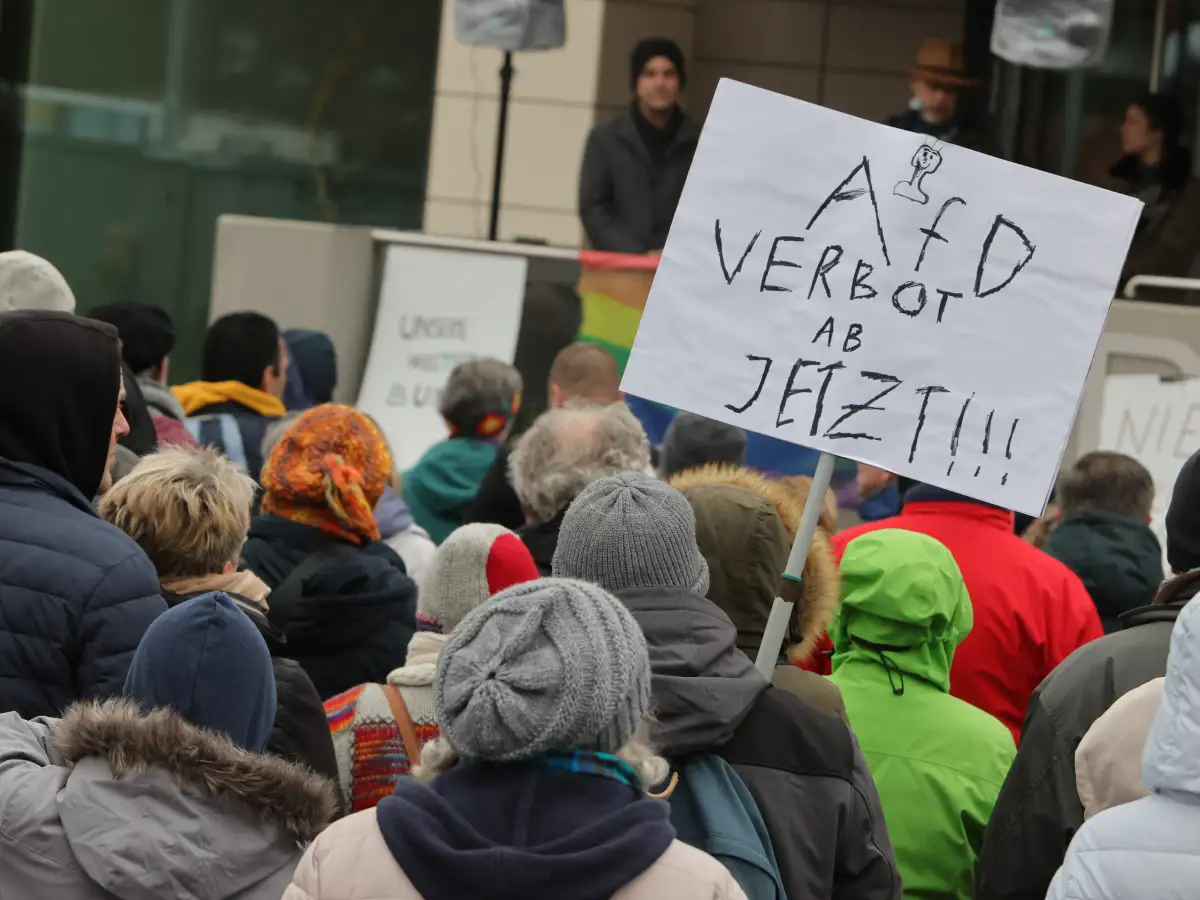 AfD
VERBOT
AB
JETZT!!!
UNSERE
NIE